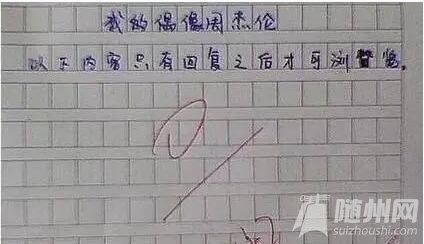 我的偶像周杰伦
以下内容只有回复之后才可浏览。
随州网
suizhoushi.com